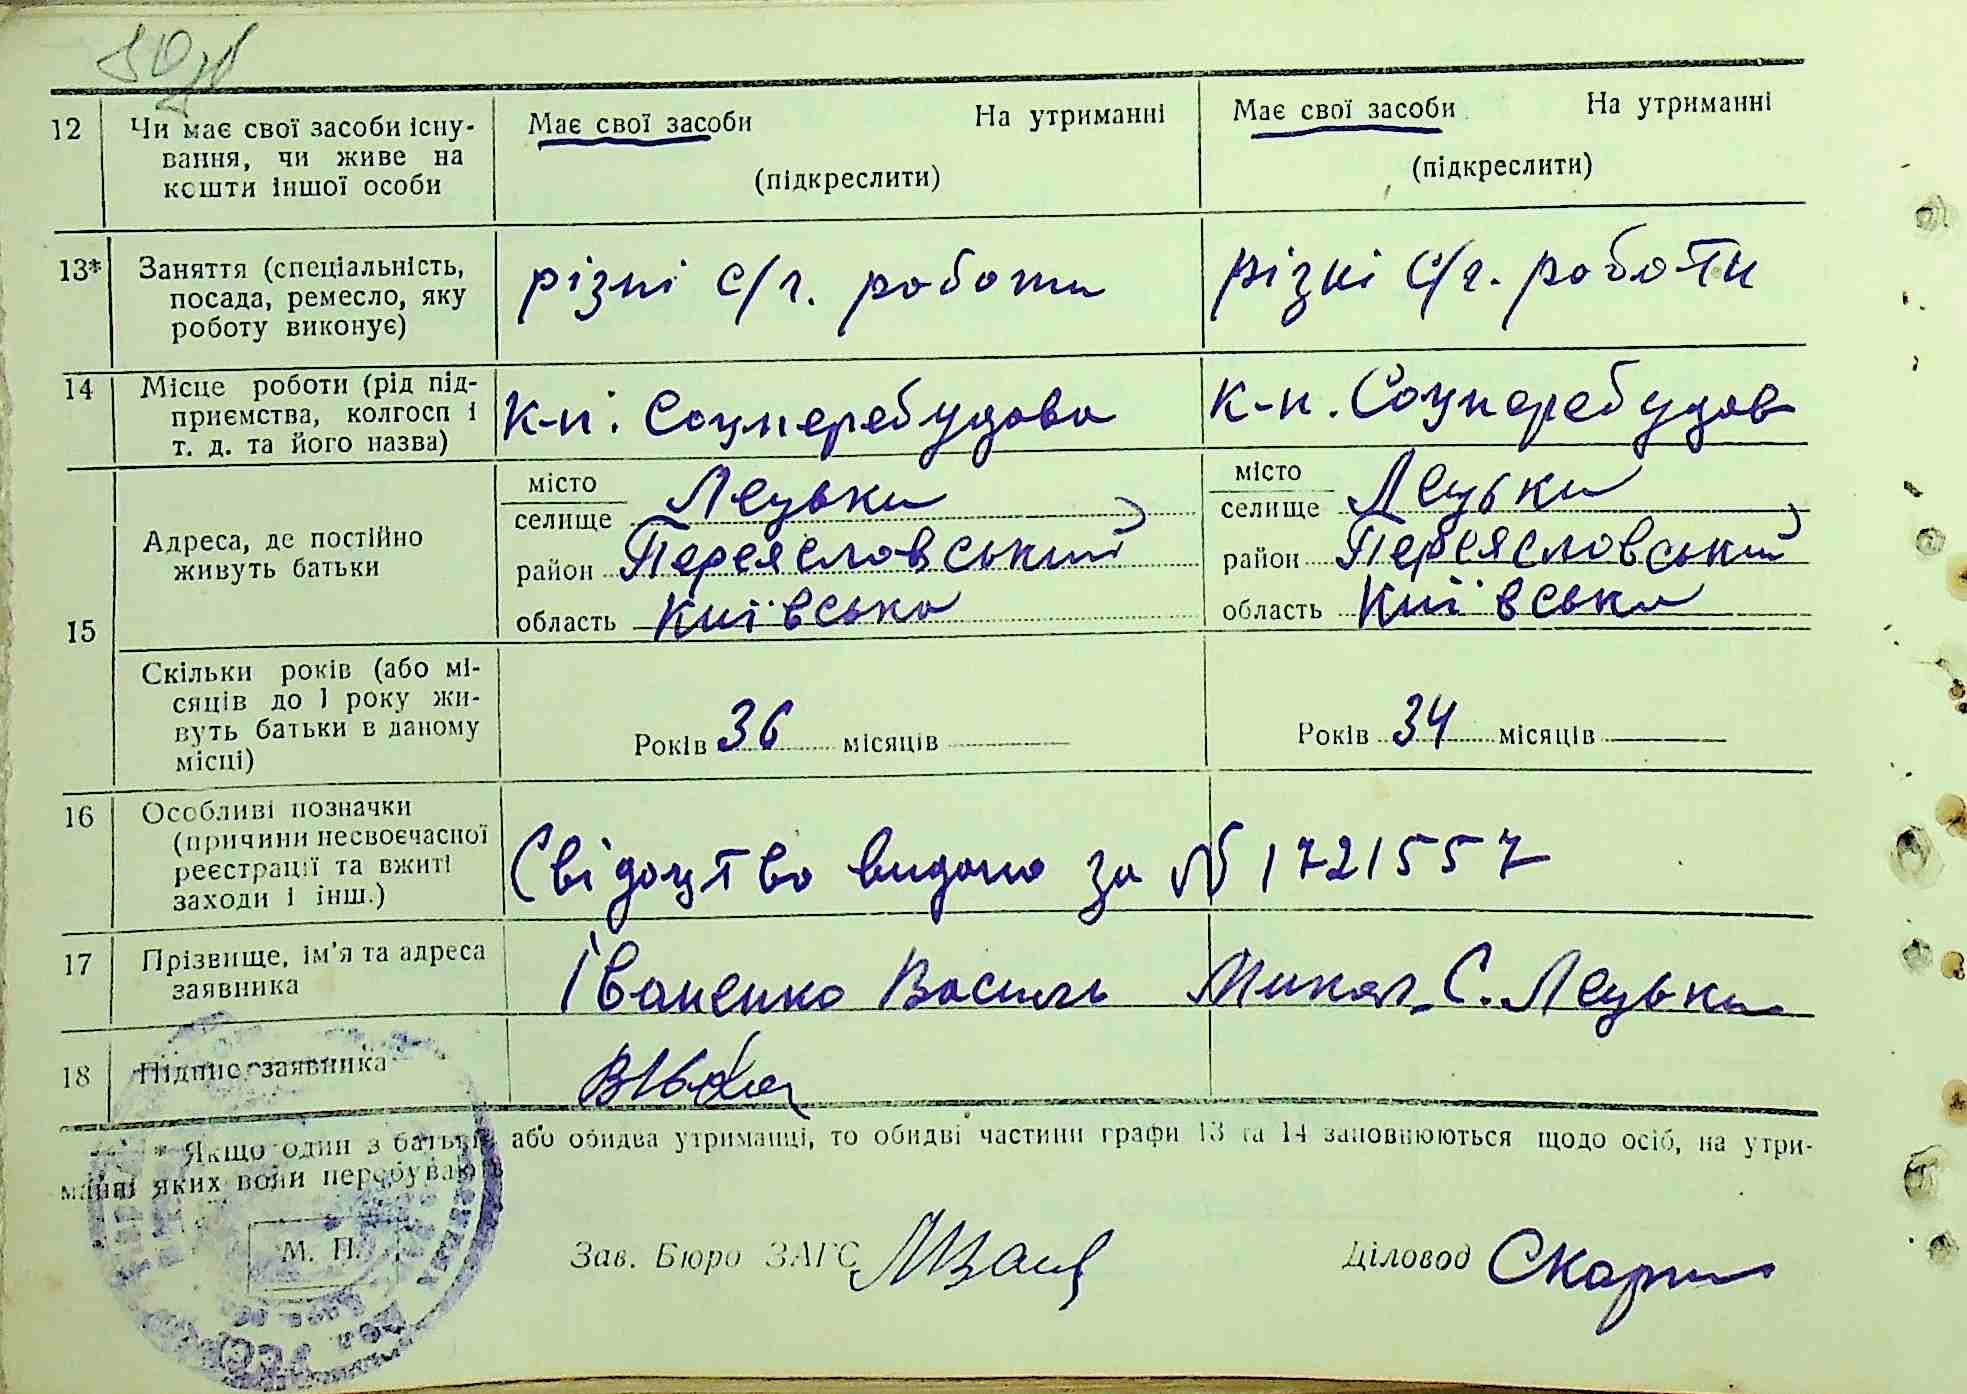 12 Чи має свої засоби існу-
вання, чи живе на
кошти іншої особи
Має свої засоби На утриманні
(підкреслити)
Має свої засоби На утриманні
(підкреслити)
13* Заняття (спеціальність,
посада, ремесло, яку
роботу виконує)
різні с/г. роботи
різні с/г. роботи
14 Місце роботи (рід під-
приємства, колгосп і
т. д. та його назва)
к-п. Соцперебудова
к-п. Соцперебудов
15 Адреса, де постійно
живуть батьки
місто
селище Лецьки
район Переясловський
область Київська
місто
селище Лецьки
район Переясловський
область Київська
Скільки років (або мі-
сяців до 1 року жи-
вуть батьки в даному
місці)
Років 36 місяців
Років 34 місяців
16 Особливі позначки
(причини несвоєчасної
реєстрації та вжиті
заходи і інш.)
Свідоцтво видано за N 1721557
17 Прізвище, ім'я та адреса
заявника
Іваненко Василь Микол. С. Лецьки
18 Підпис заявника
* Якщо один з батьків або обидва утриманці, то обидві частини графи 13 та 14 заповнюються щодо осіб, на утри-
манні яких вони перебувають
М. П.
Зав. Бюро ЗАГС
Діловод